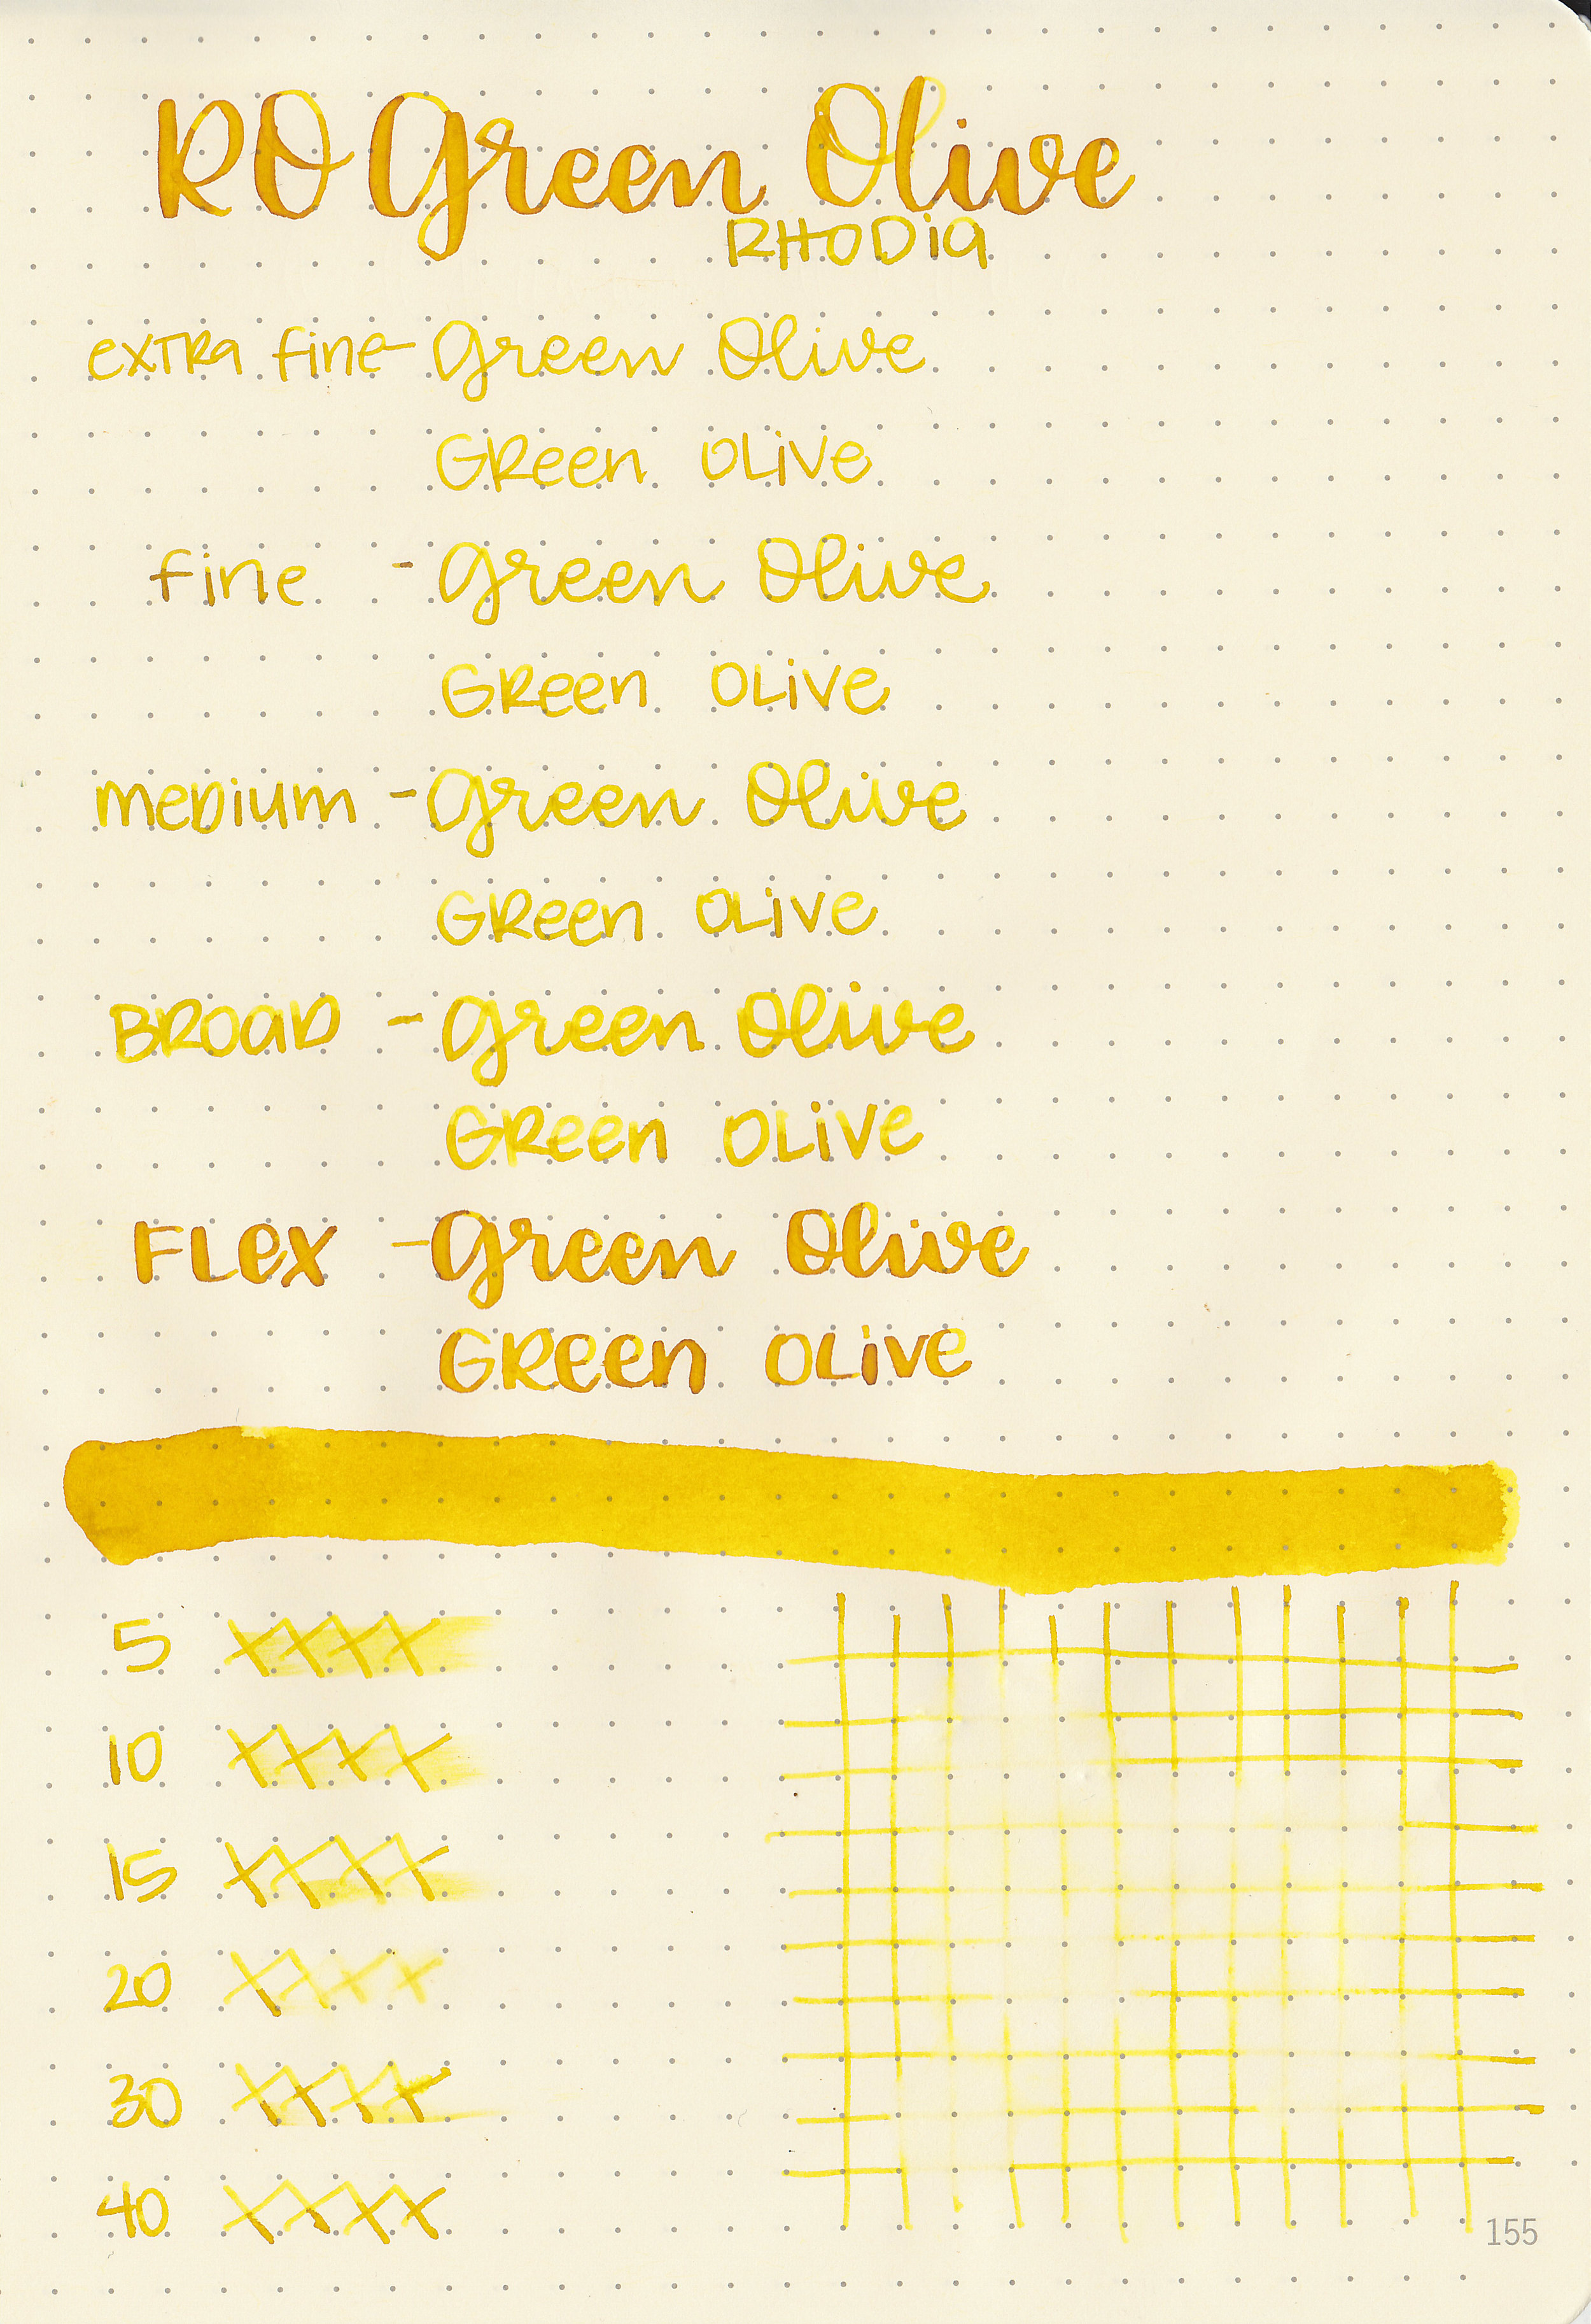 RO Green Olive
RHODia
exTRa fine - Green Olive
GReen OLive
fine - Green Olive
GReen OLive
meDium - Green Olive
GReen OLive
BROaD - Green Olive
GReen OLive
FLex - Green Olive
GReen OLive
5 XXXX
10 XXXX
15 XXXX
20 XXXX
30 XXXX
40 XXXX
155